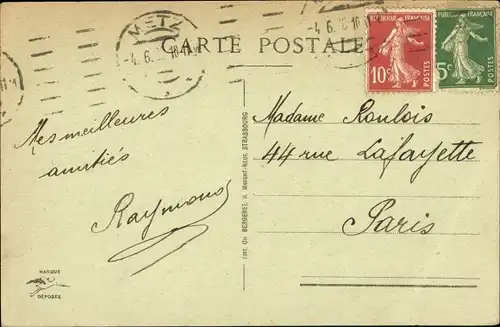 METZ
CARTE POSTALE
RÉPUBLIQUE FRANÇAISE
10c
POSTES
RÉPUBLIQUE FRANÇAISE
5c
POSTES
Mes meilleures
amitiés
Raymond
Madame Roulois
44 rue Lafayette
Paris
MARQUE
DÉPOSÉE
CH. BERGERET, STRASBOURG